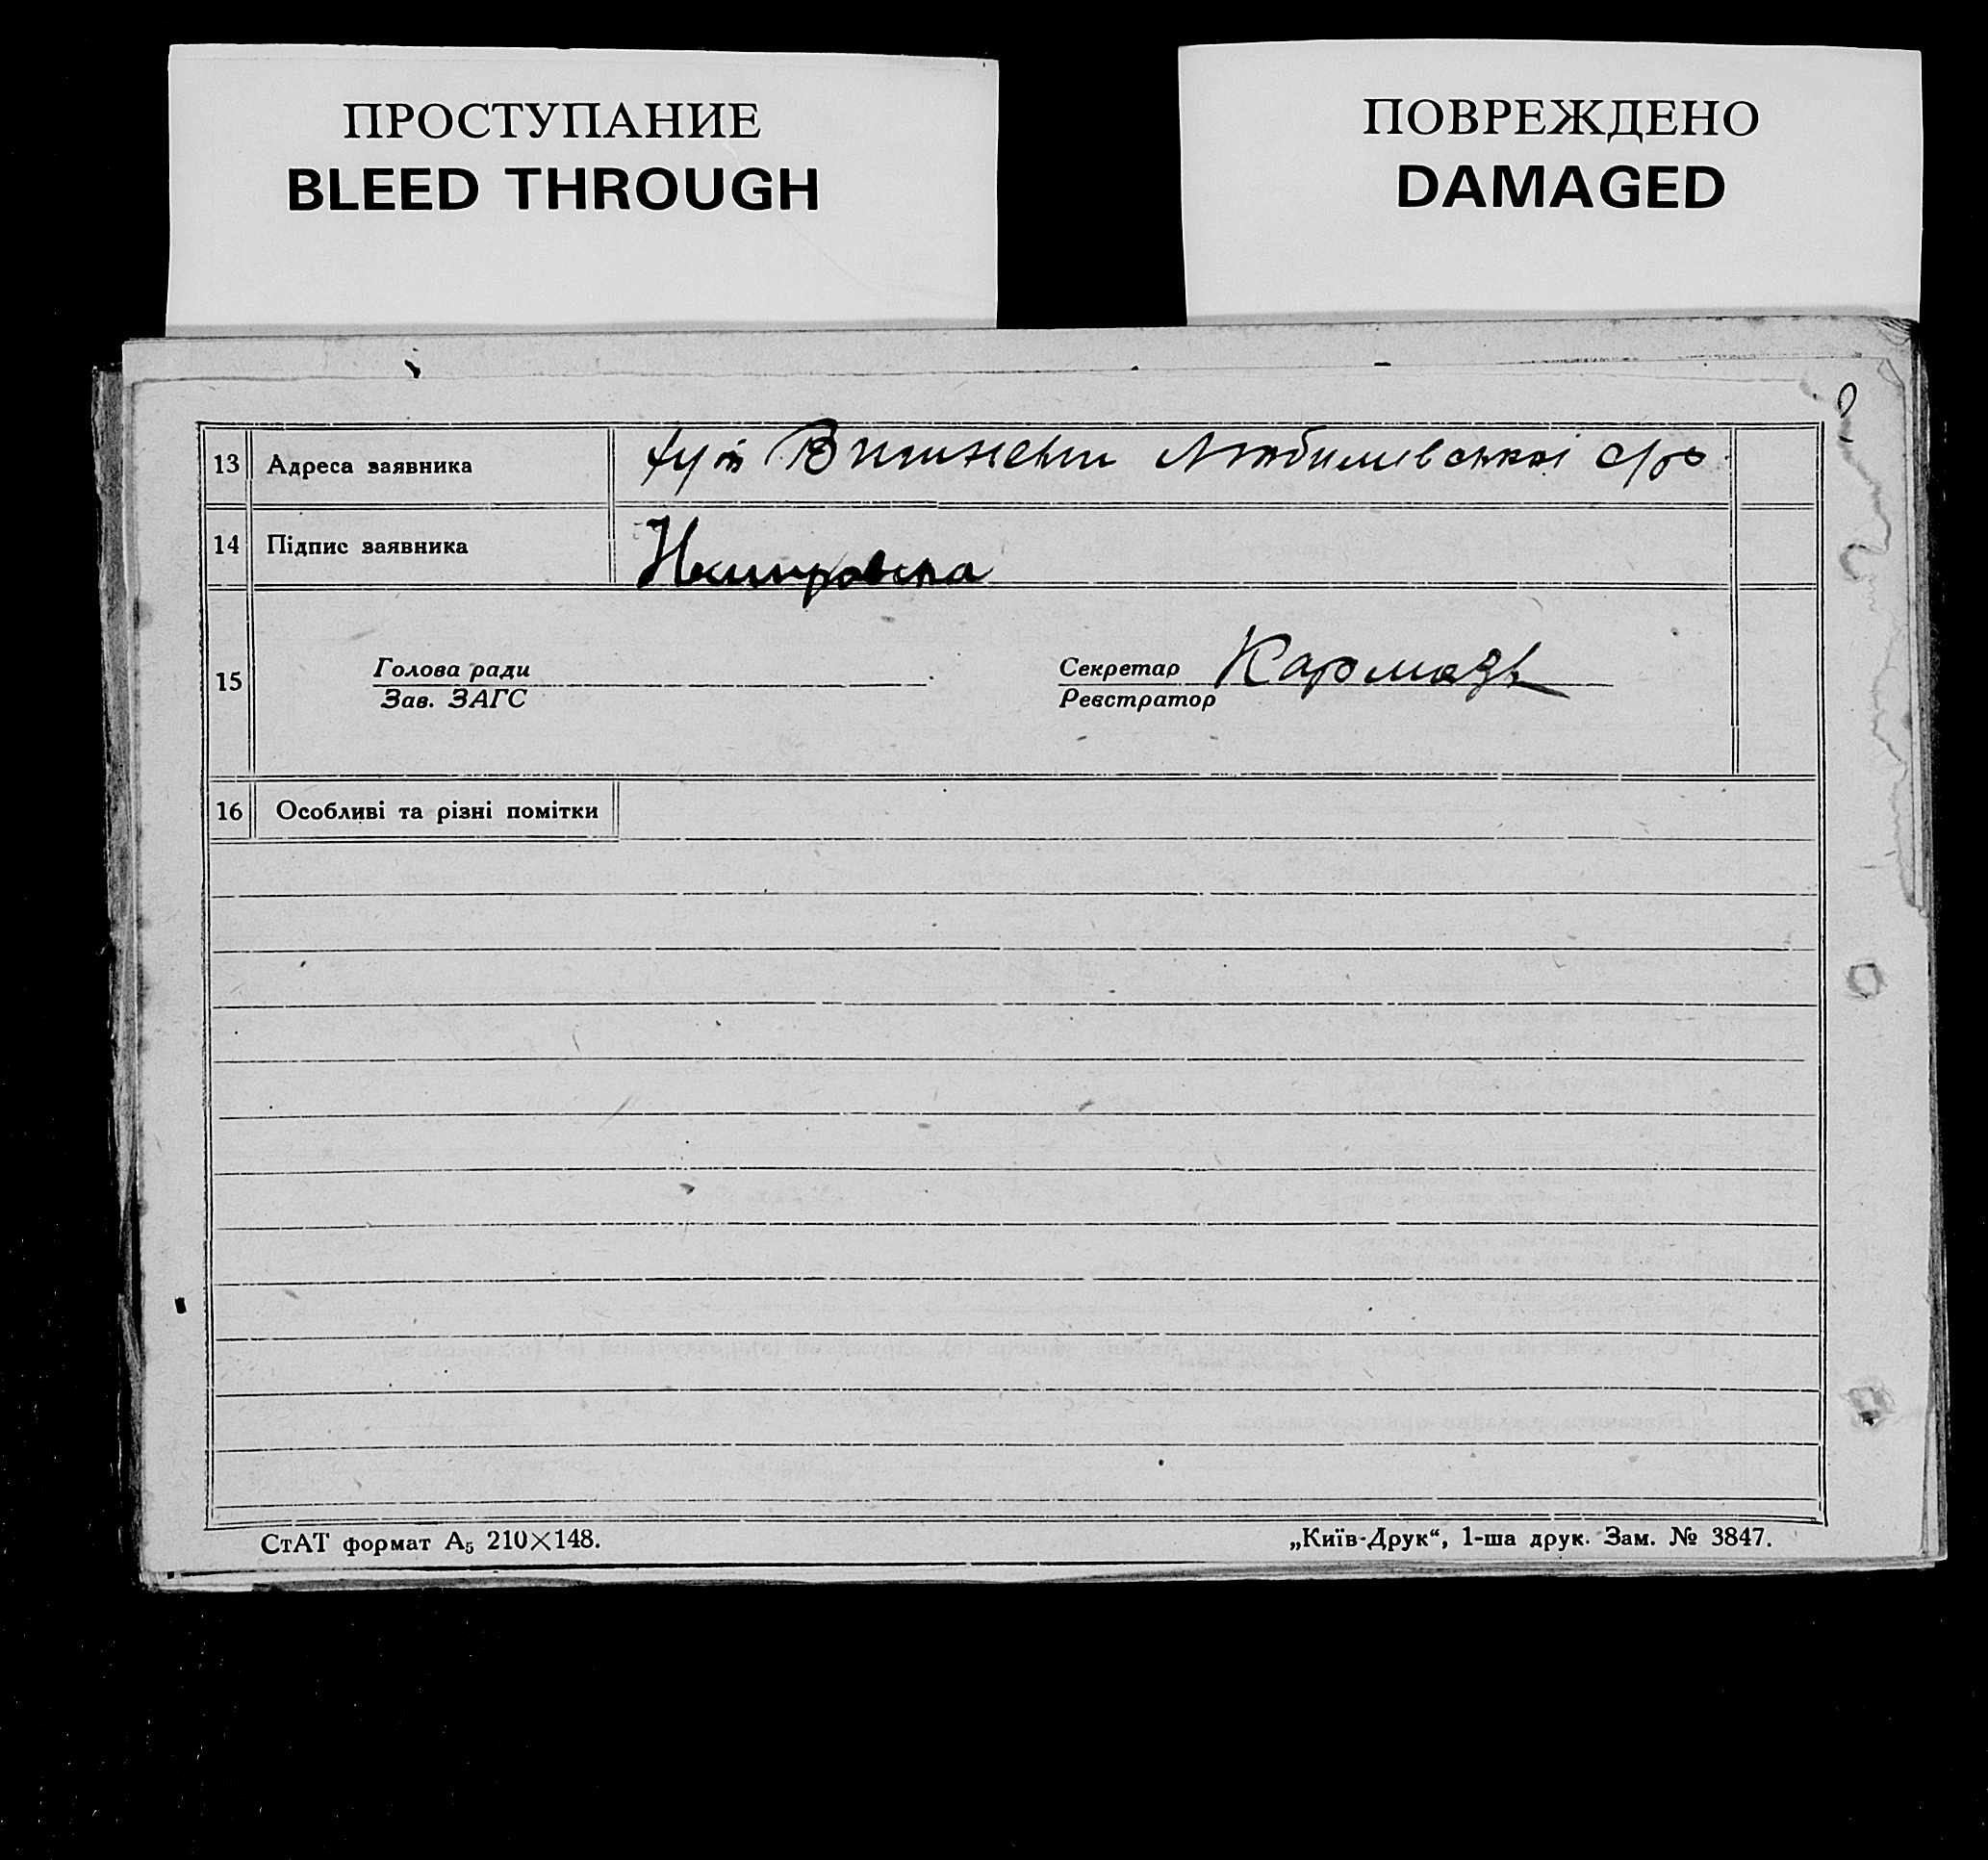 ПРОСТУПАНИЕ
BLEED THROUGH
ПОВРЕЖДЕНО
DAMAGED
13 Адреса заявника хут Вишневи Любимівської с/р
14 Підпис заявника
15 Голова ради Секретар Кармазь
Зав. ЗАГС Реєстратор
16 Особливі та різні помітки
СтАТ формат А₅ 210×148. „Київ-Друк“, 1-ша друк. Зам. № 3847.